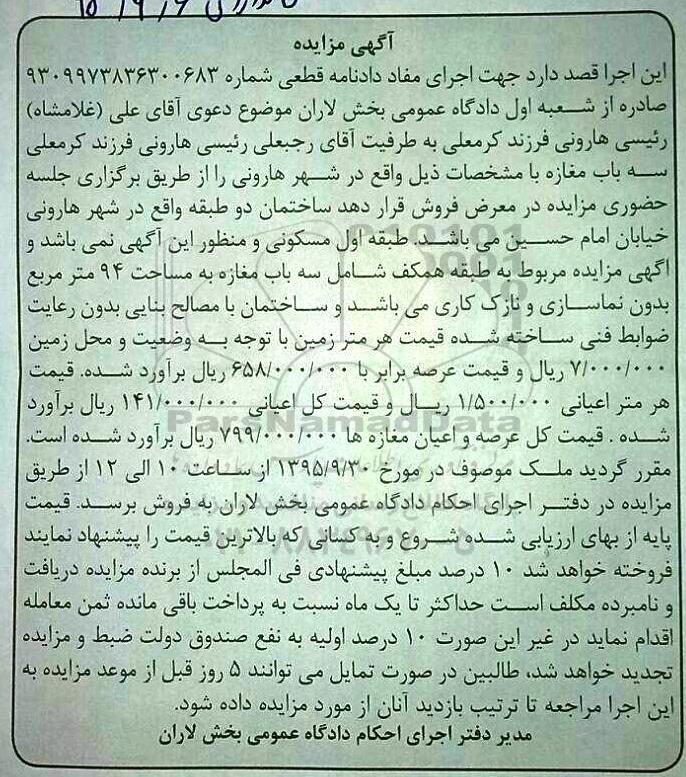 آگهی مزایده
این اجرا قصد دارد جهت اجرای مفاد دادنامه قطعی شماره ۹۳۰۹۹۷۳۸۳۶۳۰۰۶۸۳
صادره از شعبه اول دادگاه عمومی بخش لاران موضوع دعوی آقای علی (غلامشاه)
رئیسی هارونی فرزند کرمعلی به طرفیت آقای رجبعلی رئیسی هارونی فرزند کرمعلی
سه باب مغازه با مشخصات ذیل واقع در شهر هارونی را از طریق برگزاری جلسه
حضوری مزایده در معرض فروش قرار دهد ساختمان دو طبقه واقع در شهر هارونی
خیابان امام حسین می باشد. طبقه اول مسکونی و منظور این آگهی نمی باشد و
اگهی مزایده مربوط به طبقه همکف شامل سه باب مغازه به مساحت ۹۴ متر مربع
بدون نماسازی و نازک کاری می باشد و ساختمان با مصالح بنایی بدون رعایت
ضوابط فنی ساخته شده قیمت هر متر زمین با توجه به وضعیت و محل زمین
۷/۰۰۰/۰۰۰ ریال و قیمت عرصه برابر با ۶۵۸/۰۰۰/۰۰۰ ریال برآورد شده. قیمت
هر متر اعیانی ۱/۵۰۰/۰۰۰ ریال و قیمت کل اعیانی ۱۴۱/۰۰۰/۰۰۰ ریال برآورد
شده . قیمت کل عرصه و اعیان مغازه ها ۷۹۹/۰۰۰/۰۰۰ ریال برآورد شده است.
مقرر گردید ملک موصوف در مورخ ۱۳۹۵/۹/۳۰ از ساعت ۱۰ الی ۱۲ از طریق
مزایده در دفتر اجرای احکام دادگاه عمومی بخش لاران به فروش برسد. قیمت
پایه از بهای ارزیابی شده شروع و به کسانی که بالاترین قیمت را پیشنهاد نمایند
فروخته خواهد شد ۱۰ درصد مبلغ پیشنهادی فی المجلس از برنده مزایده دریافت
و نامبرده مکلف است حداکثر تا یک ماه نسبت به پرداخت باقی مانده ثمن معامله
اقدام نماید در غیر این صورت ۱۰ درصد اولیه به نفع صندوق دولت ضبط و مزایده
تجدید خواهد شد، طالبین در صورت تمایل می توانند ۵ روز قبل از موعد مزایده به
این اجرا مراجعه تا ترتیب بازدید آنان از مورد مزایده داده شود.
مدیر دفتر اجرای احکام دادگاه عمومی بخش لاران
ParsNamadData